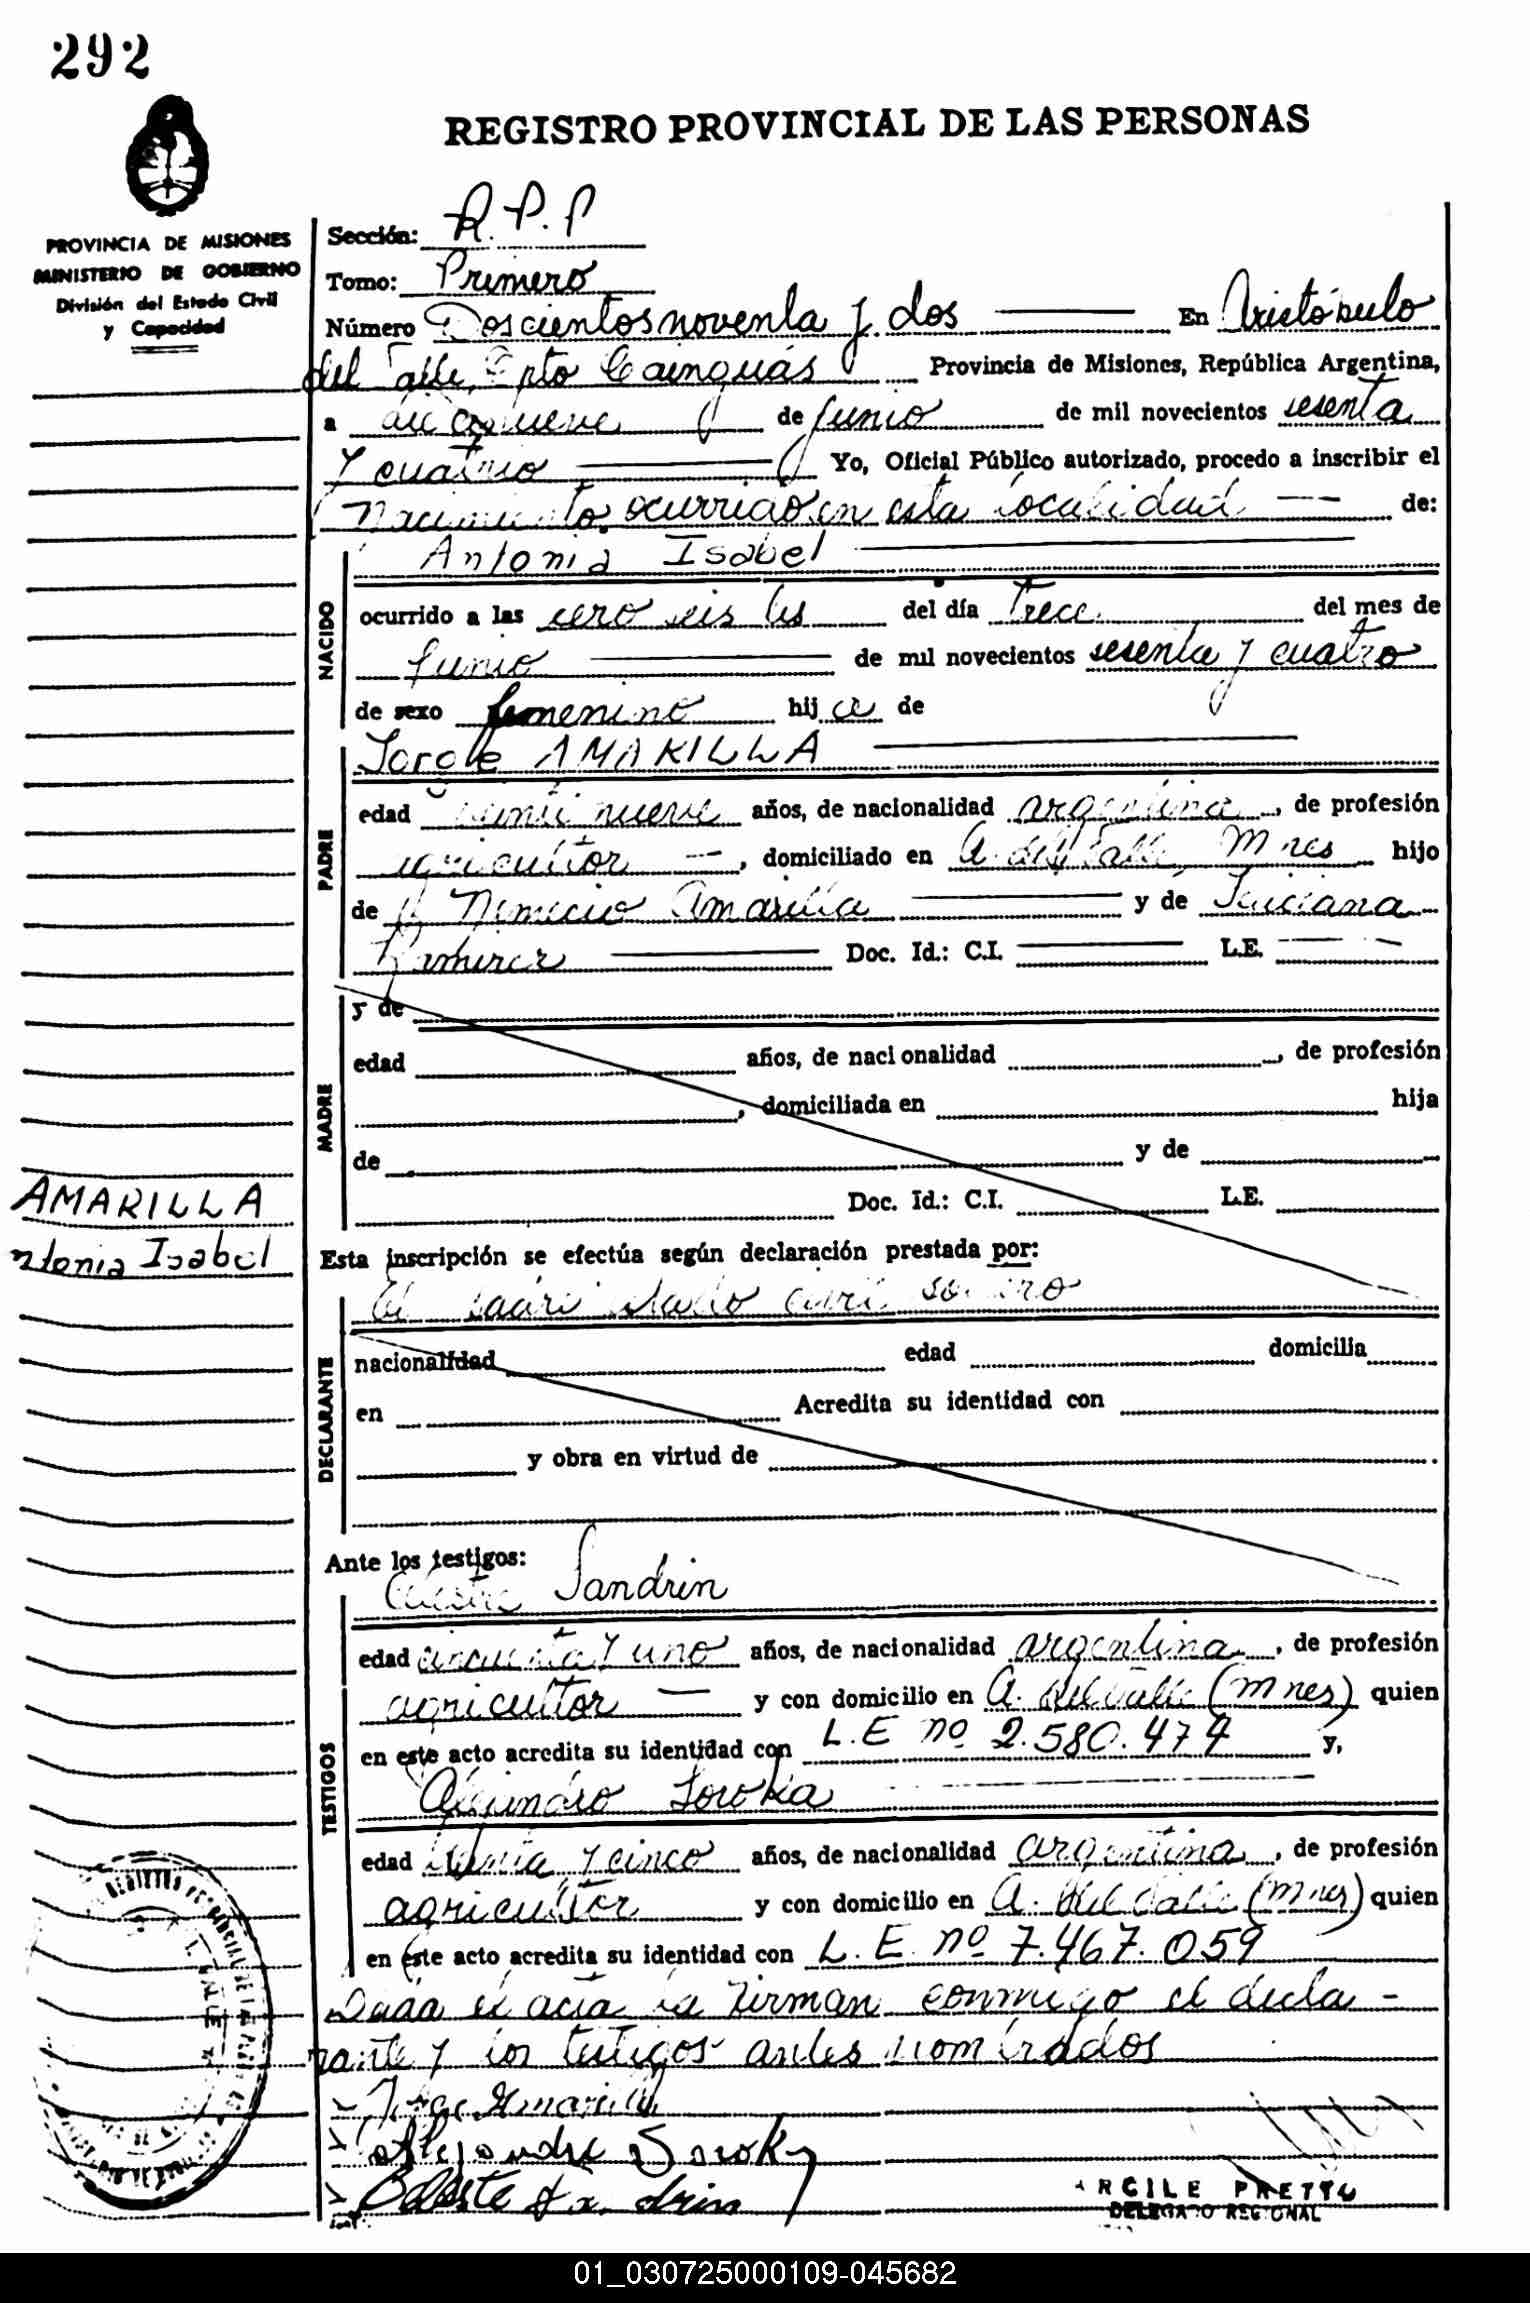 292
REGISTRO PROVINCIAL DE LAS PERSONAS
PROVINCIA DE MISIONES
MINISTERIO DE GOBIERNO
División del Estado Civil
y Capacidad
Sección: R.P.P
Tomo: Primero
Número Doscientos noventa y dos En Aristóbulo
del Valle, Dpto Cainguás Provincia de Misiones, República Argentina,
a diecinueve de Junio de mil novecientos sesenta
y cuatro Yo, Oficial Público autorizado, procedo a inscribir el
Nacimiento ocurrido en esta localidad de:
Antonia Isabel
NACIDO
ocurrido a las cero seis hs del día Trece del mes de
Junio de mil novecientos sesenta y cuatro
de sexo femenino hij a de
Jorge AMARILLA
PADRE
edad nueve años, de nacionalidad argentina, de profesión
agricultor, domiciliado en A. del Valle, Mnes hijo
de Nemecio Amarilla y de
Ramirez Doc. Id.: C.I. L.E.
MADRE
y de
edad años, de nacionalidad , de profesión
, domiciliada en hija
de y de
Doc. Id.: C.I. L.E.
AMARILLA
ntonia Isabel
Esta inscripción se efectúa según declaración prestada por:
El padre estado civil soltero
DECLARANTE
nacionalidad edad domicilia
en Acredita su identidad con
y obra en virtud de
Ante los testigos:
Celeste Sandrin
TESTIGOS
edad cincuenta y uno años, de nacionalidad argentina, de profesión
agricultor y con domicilio en A. del Valle (Mnes) quien
en este acto acredita su identidad con L.E nº 2.580.474 y,
Alejandro Soroka
edad y cinco años, de nacionalidad argentina, de profesión
agricultor y con domicilio en A. del Valle (Mnes) quien
en este acto acredita su identidad con L.E. nº 7.467.059
el acta la firman conmigo el decla-
rante y los testigos antes nombrados
Jorge Amarilla
Alejandro Soroka
Celeste Sandrin
ARCILE PRETTO
DELEGADO REGIONAL
01_030725000109-045682